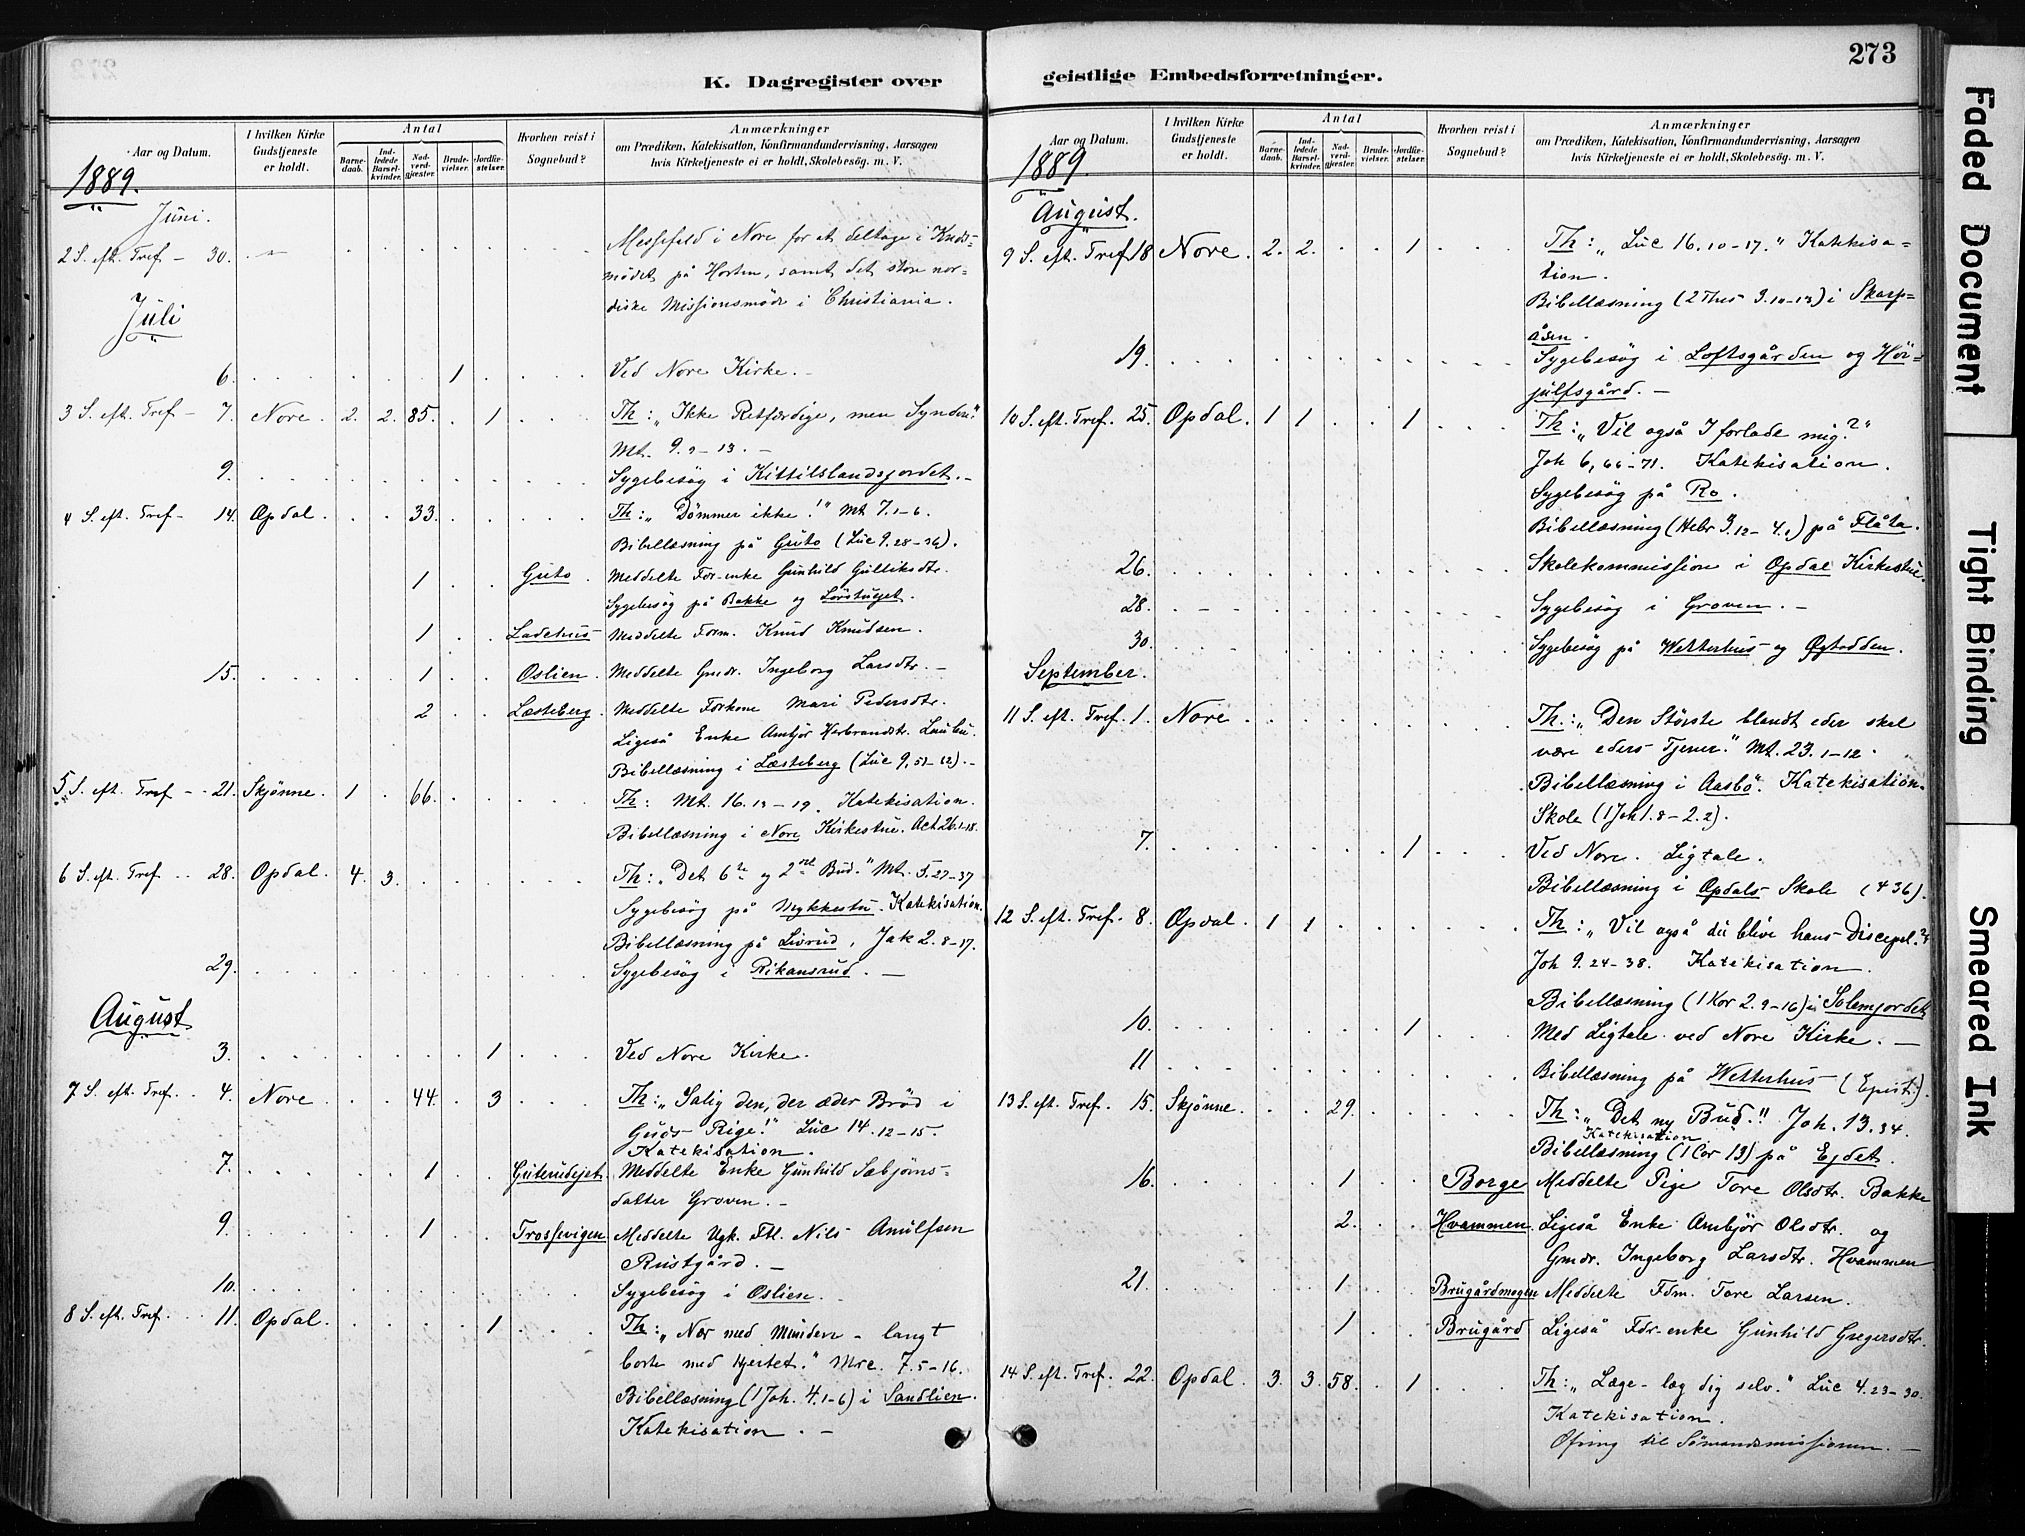 K. Dagregister over
Aar og Datum.
I hvilken Kirke Gudstjeneste er holdt.
Antal
Barne-daab.
Ind-ledede Barsel-kvinder.
Nad-verd-gjæster.
Brude-vielser.
Jordfæ-stelser.
Hvorhen reist i Sognebud?
Anmærkninger
om Prædiken, Katekisation, Konfirmandundervisning, Aarsagen
hvis Kirketjeneste ei er holdt, Skolebesøg. m. V.
1889.
Juni.
2 S. eft. Tref - 30. Messefald i Nore for at deltage i Kreds-
mödet på Horten, samt det store nor-
diske Missionsmöde i Christiania.
Juli
6. 1 Ved Nore Kirke. -
3 S. eft. Tref - 7. Nore. 2. 2. 85. 1 Th: "Ikke Retfærdige, men Syndere."
Mt. 9. 9-13. -
9. Sygebesög i Kittilslandsjordet. -
4 S. eft. Tref - 14. Opdal. 33. Th: "Dömmer ikke!" Mt 7. 1-6.
Bibellæsning på Guto (Luc 9. 28-36).
1 Guto. Meddelte For-enke Gunhild Gulliksdtr.
Sygebesög på Bakke og Lörstuejet.
1 Ladehus Meddelte Form. Knud Knudsen.
15. 1 Oslien. Meddelte Gmdr. Ingeborg Larsdtr. -
2 Læsteberg. Meddelte Fdrkone Mari Pedersdtr.
Ligeså Enke Ambjör Herbrandstr. Laubu.
Bibellæsning i Læsteberg (Luc 9, 51-62). -
5 S. eft. Tref - 21. Skjönne. 1 66. Th: Mt. 16. 13-19. Katekisation.
Bibellæsning i Nore Kirkestue. Act 26. 1-18.
6 S. eft. Tref 28. Opdal. 4. 3. Th: "Det 6te og 2det Bud." Mt. 5. 27-37
Sygebesög på Mykkestu. Katekisation.
Bibellæsning på Livrud, Jak 2. 8-17.
29. Sygebesög i Rikansrud. -
August
3. 1 Ved Nore Kirke.
7 S. eft. Tref. 4. Nore. 44. 3 Th: "Salig den, der æder Bröd i
Guds Rige!" Luc 14. 12-15.
Katekisation.
7. 1 Guterudejet. Meddelte Enke Gunhild Sæbjörns-
datter Groven. -
9. 1 Trossevigen Meddelte Ugk. Ftl. Nils Arnulfsen
Rustgård. -
10. Sygebesög i Oslien.
8 S. eft. Tref. 11. Opdal. 1 Th: "Nær med Munden - langt
borte med Hjertet." Mrc. 7. 5-16.
Bibellæsning (1 Joh. 4. 1-6) i Sandlien.
Katekisation. -
273
geistlige Embedsforretninger.
Aar og Datum.
I hvilken Kirke Gudstjeneste er holdt.
Antal
Barne-daab.
Ind-ledede Barsel-kvinder.
Nad-verd-gjæster.
Brude-vielser.
Jordfæ-stelser.
Hvorhen reist i Sognebud?
Anmærkninger
om Prædiken, Katekisation, Konfirmandundervisning, Aarsagen
hvis Kirketjeneste ei er holdt, Skolebesøg. m. V.
1889.
August.
9 S. eft. Tref. 18 Nore. 2. 2. 1 Th: "Luc 16. 10-17." Katekisa-
tion.
Bibellæsning (2 Thes 3. 10-13) i Skarp-
åsen.
19. Sygebesög i Loftsgården og Hör-
julfsgård. -
10 S. eft. Tref. 25. Opdal. 1 1 1 Th: "Vil også I forlade mig?"
Joh 6, 66-71. Katekisation.
Sygebesög på Ro.
Bibellæsning (Hebr 3. 12-4. 2) på Flåta.
26. Skolekommission i Opdal Kirkestue.
28. Sygebesög i Groven. -
30. Sygebesög på Wetterhus og Ögtodden.
September.
11 S. eft. Tref. 1. Nore. Th: "Den Störste blandt eder skal
være eders Tjener." Mt. 23. 1-12.
Bibellæsning i Aasbö. Katekisation.
Skole (1 Joh 1. 8-2. 2).
7. 1 Ved Nore. Ligtale.
Bibellæsning i Opdals Skole (Ψ 36).
12 S. eft. Tref. 8. Opdal. 1 1 Th: "Vil også du blive hans Discipel?"
Joh 9. 24-38. Katekisation.
Bibellæsning (1 Kor 2. 9-16) i Solemjordet
10. 1 Med Ligtale ved Nore Kirke. -
11 Bibellæsning på Wetterhus (Epist.).
13 S. eft. Tref. 15. Skjönne. 29. Th: "Det ny Bud." Joh. 13. 34.
Katekisation
Bibellæsning (1 Cor 13) på Ejdet.
16. 1 Borge Meddelte Pige Tore Olsdtr. Bakke
2. Hvammen. Ligeså Enke Ambjör Olsdtr. og
Gmdr. Ingeborg Larsdtr. Hvammen
21. 1 Brugårdmogen Meddelte Fdm. Tore Larsen.
1 Brugård Ligeså For-enke Gunhild Gregersdtr.
14 S. eft. Tref. 22. Opdal. 3. 3. 58. 1 Th: "Læge - læg dig selv." Luc 4. 23-30.
Katekisation.
Ofring til Sömandsmissionen. -
Faded Document
Tight Binding
Smeared Ink